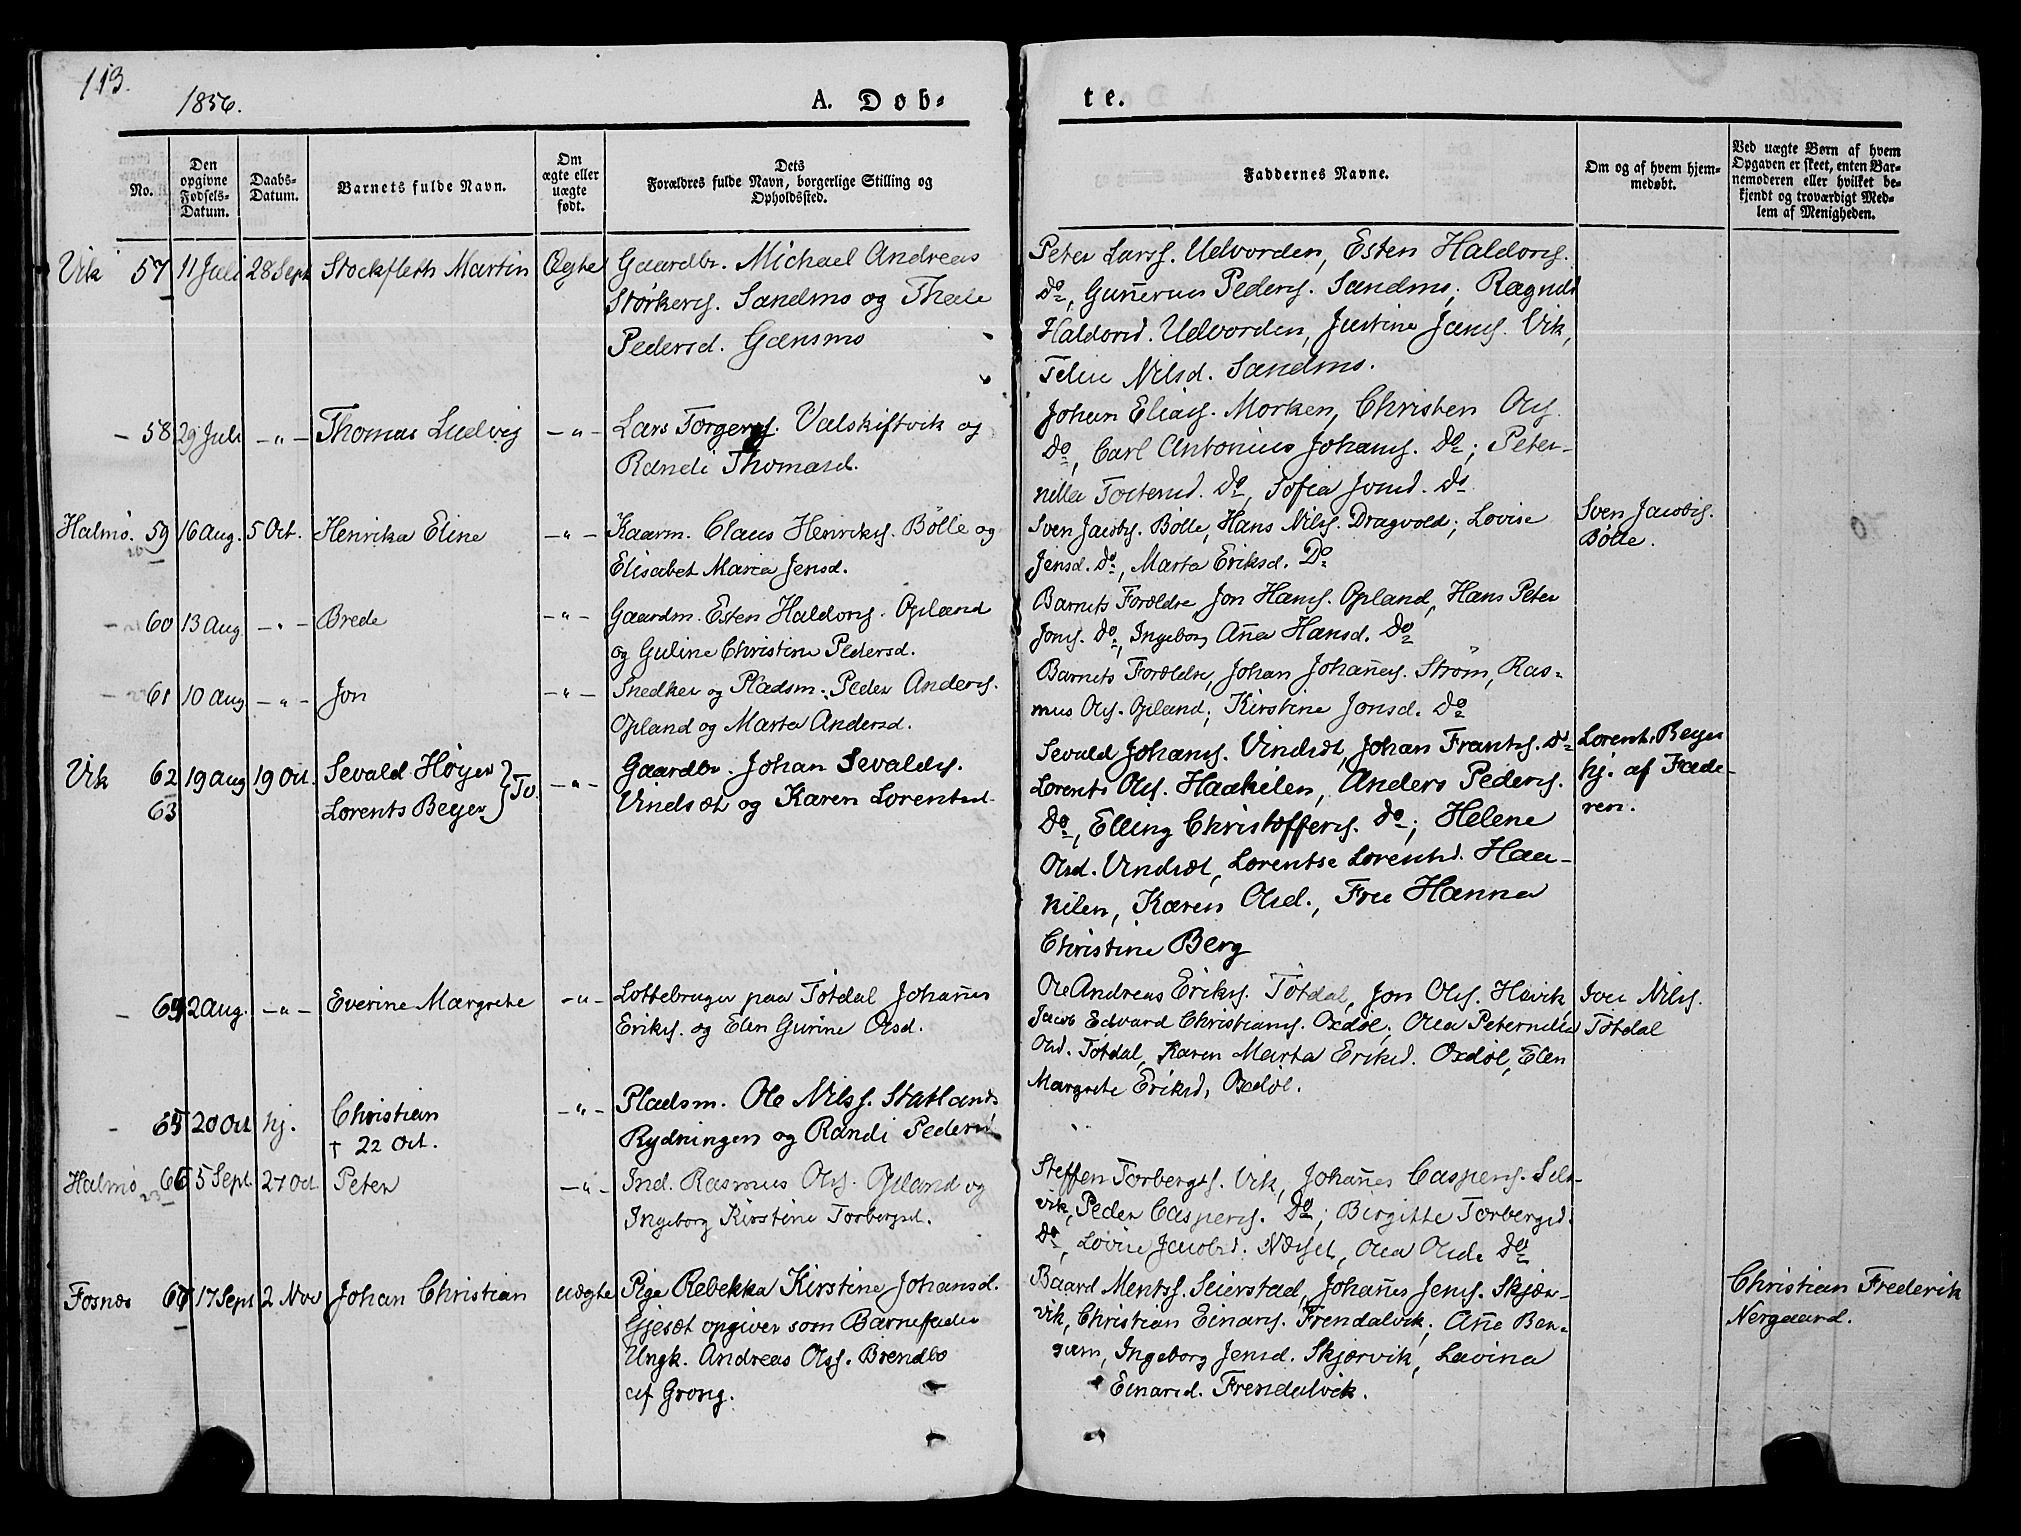 113.
1856.
A. Døb-
te.
No.
Den opgivne Fødsels-Datum.
Daabs-Datum.
Barnets fulde Navn.
Om ægte eller uægte født.
Dets
Forældres fulde Navn, borgerlige Stilling og
Opholdssted.
Faddernes Navne.
Om og af hvem hjem-
medøbt.
Ved uægte Børn af hvem
Opgaven er skeet, enten Bar-
nemoderen eller hvilket be-
kjendt og troværdigt Med-
lem af Menigheden.
Vik 57 11 Juli 28 Sept Stockfleth Martin Ægte Gaardbr. Michael Andreas
Størkers. Sandmo og
Pedersd. Gansmo
Peter Larss. Udvorden, Esten Haldors.
Do, Gunerus Peders. Sandmo; Ragnild
Haldorsd. Udvorden, Justine Jans. Vik,
Nilsd. Sandmo.
- 58 29 Juli -"- Thomas Ludvig -"- Lars Torgers. Valskiftvik og
Randi Thomasd.
Johan Elias. Morken, Christen Ols.
Do, Carl Antonius Johans. Do; Peter-
nilla Do, Sofia Jonsd. Do
Halmø. 59 16 Aug. 5 Oct. Henrika Eline -"- Kaarm. Claus Henriks. Bölle og
Elisabet Maria Jensd.
Sven Jacobs. Bölle, Hans Nils. Dragvold; Lovise
Jensd. Do, Marta Eriksd. Do
Sven Jacobs.
Bölle.
- 60 13 Aug. -"- Brede -"- Gaardm. Esten Haldors. Opland
og Guline Christine Pedersd.
Barnets Forældre, Jon Hans. Opland, Hans Peter
Jons. Do, Ingeborg Aña Hansd. Do
- 61 10 Aug -"- Jon -"- Snedker og Pladsm. Peder Anders.
Opland og Marta Andersd.
Barnets Forældre, Johan Johañes. Strøm, Ras-
mus Ols. Opland; Kirstine Jonsd. Do
Vik 62 19 Aug 19 Oct. Sevald Høyer } Tv. -"- Gaardbr. Johan Sevalds.
63 Lorents Beyer Vindsæt og Karen Lorentsd.
Sevald Johans. Vindsæt, Johan Frants. Do
Lorents Ols. Haakilen, Anders Peders.
Do, Elling Christoffers. Do; Helene
Olsd. Vindsæt, Lorentse Lorentsd. Haa-
kilen, Karen Olsd., Fru Hanna
Christine Berg
Lorents Beyer
hj. af Fade-
ren.
- 64 2 Aug. -"- Everine Margrete -"- Lottebruger paa Tötdal Johañes
Eriks. og Elen Gurine Olsd.
Ole Andreas Eriks. Tötdal, Jon Ols. Havik,
Jacob Edvard Christians. Oxdøl; Olea Peternilla
Olsd. Tötdal, Karen Marta Eriksd. Oxdöl, Elen
Margrete Eriksd. Oxdöl.
Iver Nils.
Tötdal
- 65 20 Oct hj. Christian -"- Pladsm. Ole Nilss. Statlands
† 22 Oct. Rydningen og Randi Pedersd
Halmø 66 5 Sept. 27 Oct Peter -"- Ind. Rasmus Ols. Opland og
Ingeborg Kirstine Torbergsd.
Steffen Torbergs. Vik, Johañes Caspers. Sels-
vik, Peder Caspers. Do; Birgitte Torbergsd.
Do, Lovise Jacobsd. Næsset, Olea Olsd. Do
Fosnæs 67 17 Sept 2 Nov Johan Christian uægte Pige Rebekka Kirstine Johansd.
Gjesæt opgiver som Barnefader
Ungk. Andreas Olss. Brendbo
af Grong.
Baard Mentss. Seierstad, Johañes Jens. Skjær-
vik, Christian Einars. Frendalvik; Añe Ben-
Ingeborg Jensd. Skjærvik, Lavina
Einarsd. Frendalvik.
Christian Frederik
Nergaard.